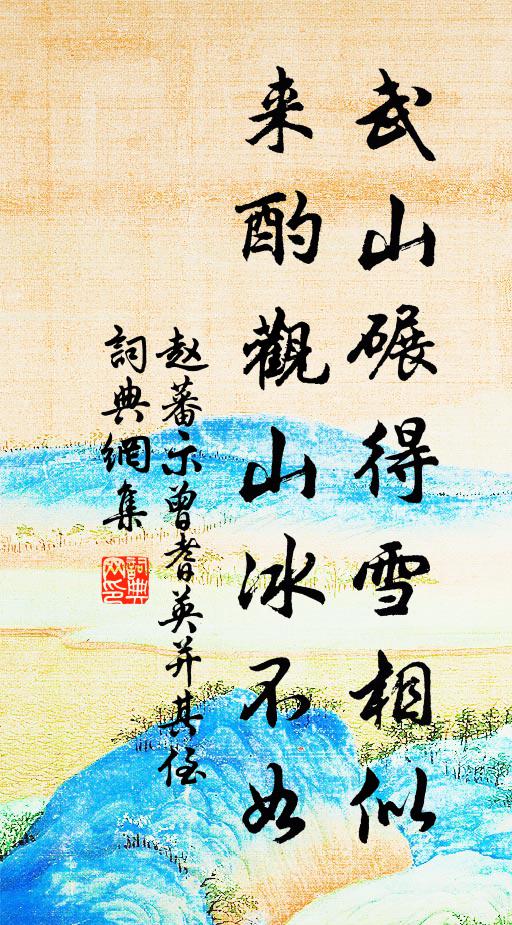 武山碾得雪相似
来酌觀山冰不如
赵蕃示曾耆英并其侄
詞典網集
詞典網印